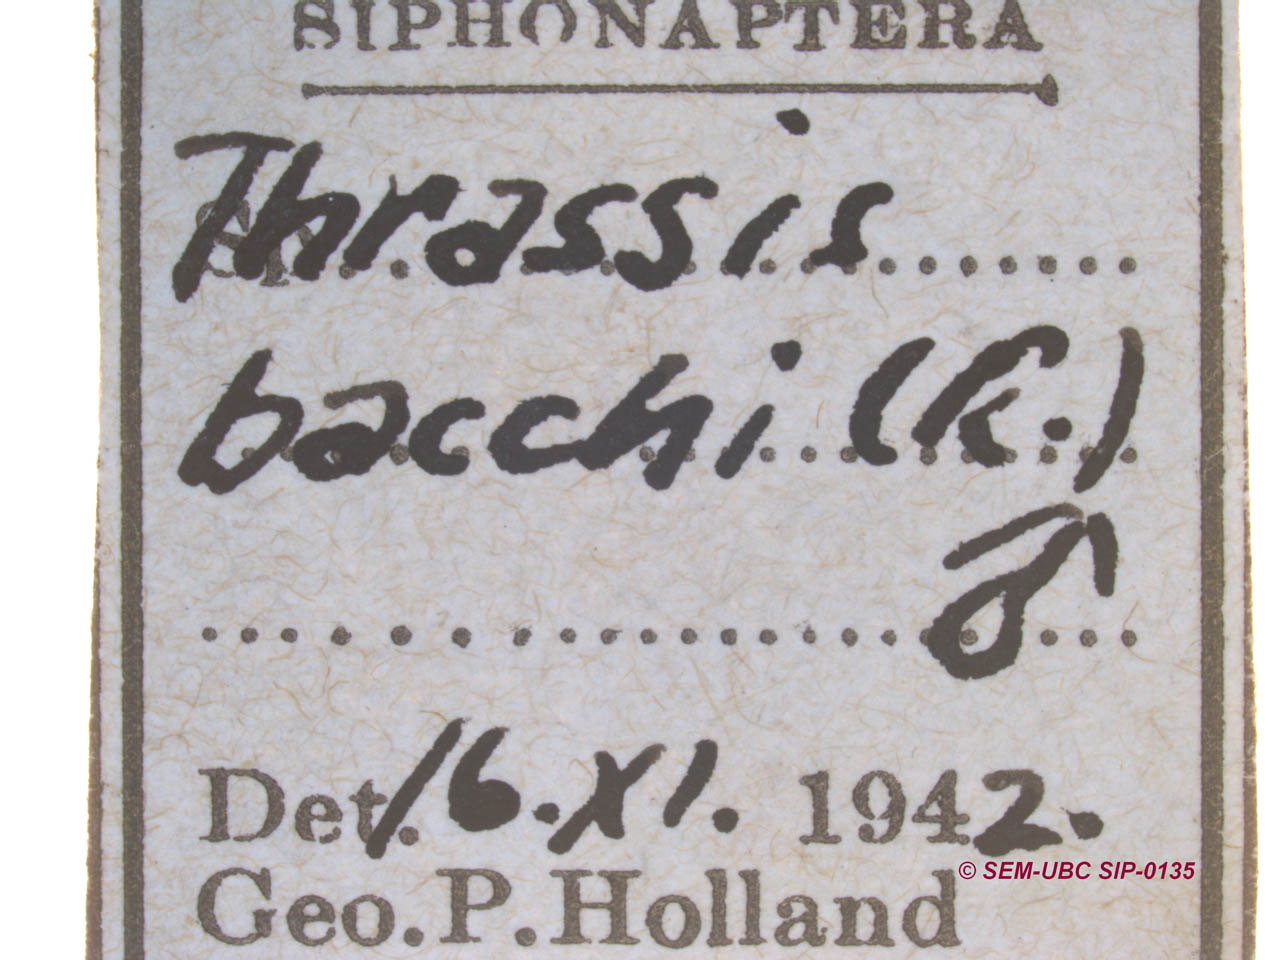 SIPHONAPTERA
Thrassis
bacchi (R.)
♂
Det. 16. XI. 1942.
© SEM-UBC SIP-0135
Geo. P. Holland